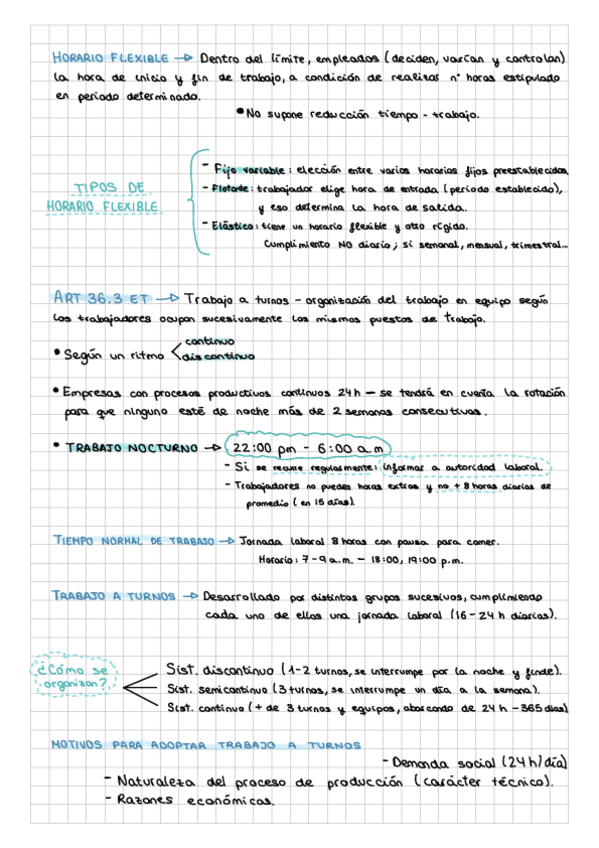 HORARIO FLEXIBLE → Dentro del límite, empleados (deciden, varían y controlan)
la hora de inicio y fin de trabajo, a condición de realizar nº horas estipulado
en periodo determinado.
• No supone reducción tiempo - trabajo.
TIPOS DE
HORARIO FLEXIBLE
- Fijo variable: elección entre varios horarios fijos preestablecidos
- Flotante: trabajador elige hora de entrada (periodo establecido),
y eso determina la hora de salida.
- Elástico: tiene un horario flexible y otro rígido.
Cumplimiento NO diario; si semanal, mensual, trimestral...
ART 36.3 ET → Trabajo a turnos - organización del trabajo en equipo según
los trabajadores ocupan sucesivamente los mismos puestos de trabajo.
• Según un ritmo < continuo
discontinuo
• Empresas con procesos productivos continuos 24h — se tendrá en cuenta la rotación
para que ninguno esté de noche más de 2 semanas consecutivas.
• TRABAJO NOCTURNO → 22:00 pm - 6:00 a.m
- Si se recurre regularmente: informar a autoridad laboral.
- Trabajadores no puedes horas extras y no + 8 horas diarias de
promedio (en 15 días).
TIEMPO NORMAL DE TRABAJO → Jornada laboral 8 horas con pausa para comer.
Horario: 7-9 a.m. — 18:00, 19:00 p.m.
TRABAJO A TURNOS → Desarrollado por distintos grupos sucesivos, cumplimiendo
cada uno de ellos una jornada laboral (16-24 h diarias).
¿Cómo se
organizan?
Sist. discontinuo (1-2 turnos, se interrumpe por la noche y finde).
Sist. semicontinuo (3 turnos, se interrumpe un día a la semana).
Sist. continuo (+ de 3 turnos y equipos, abarcando de 24 h - 365 días)
MOTIVOS PARA ADOPTAR TRABAJO A TURNOS
- Demanda social (24h/día)
- Naturaleza del proceso de producción (carácter técnico).
- Razones económicas.